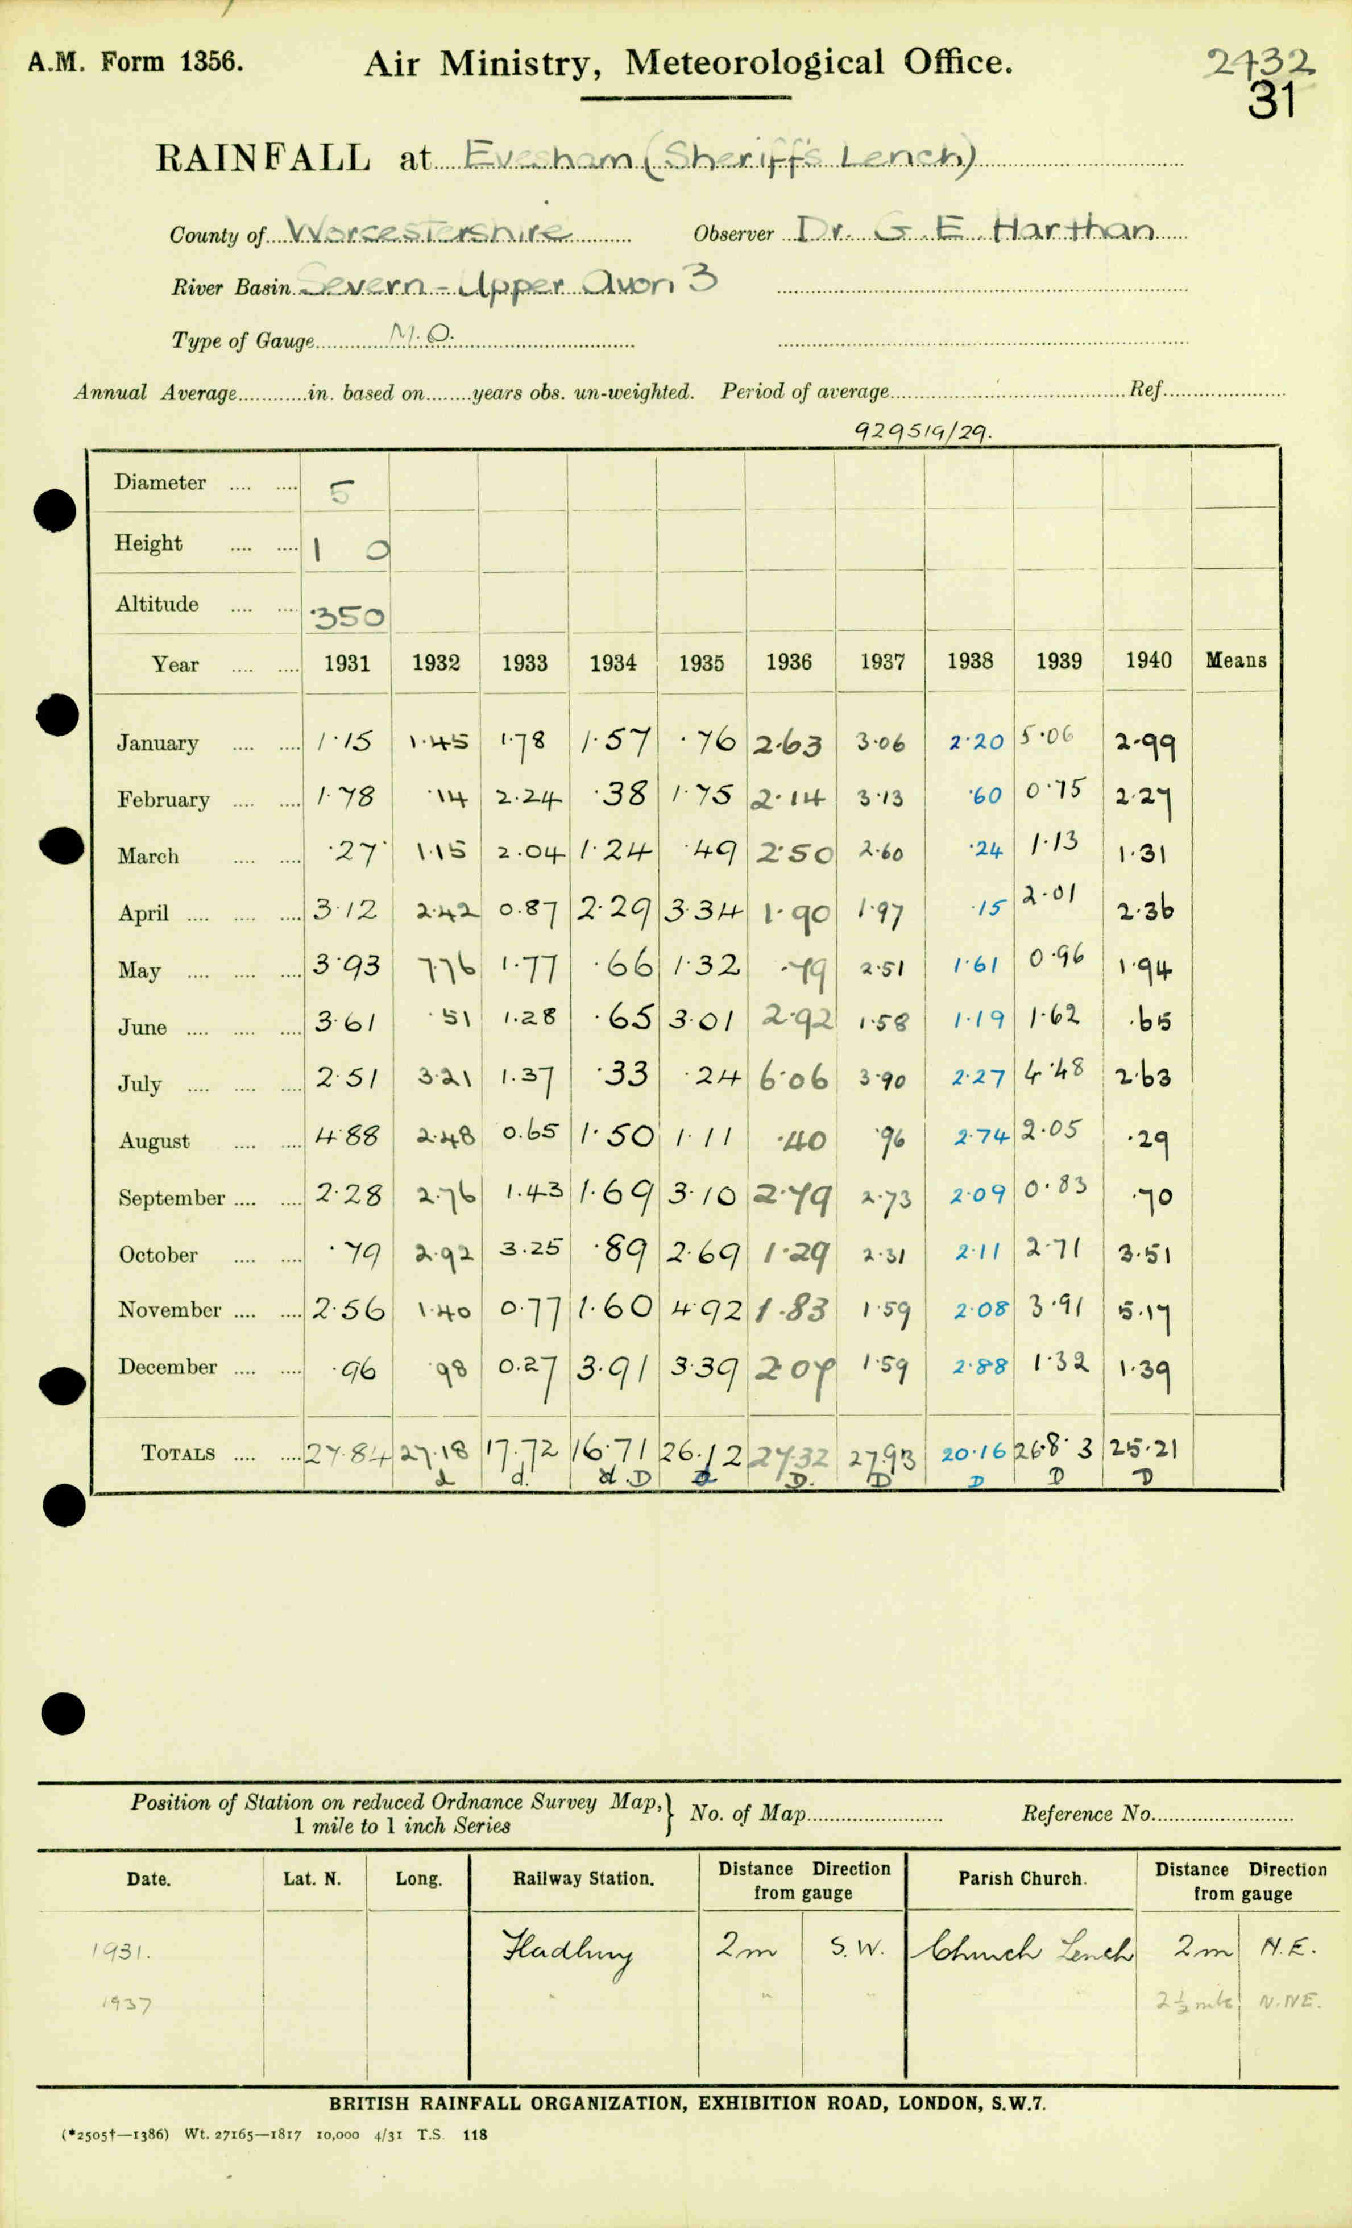 A.M. Form 1356. Air Ministry, Meteorological Office. 2432
31
RAINFALL at Evesham (Sheriff's Lench)
County of Worcestershire Observer Dr. G. E. Harthan
River Basin Severn - Upper Avon 3
Type of Gauge M.O.
Annual Average in. based on years obs. un-weighted. Period of average Ref.
929519/29.
Diameter 5
Height 1 0
Altitude 350
Year 1931 1932 1933 1934 1935 1936 1937 1938 1939 1940 Means
January 1·15 1·45 1·78 1·57 ·76 2·63 3·06 2·20 5·06 2·99
February 1·78 ·14 2·24 ·38 1·75 2·14 3·13 ·60 0·75 2·27
March ·27 1·15 2·04 1·24 ·49 2·50 2·60 ·24 1·13 1·31
April 3·12 2·42 0·87 2·29 3·34 1·90 1·97 ·15 2·01 2·36
May 3·93 7·76 1·77 ·66 1·32 ·79 2·51 1·61 0·96 1·94
June 3·61 ·51 1·28 ·65 3·01 2·92 1·58 1·19 1·62 ·65
July 2·51 3·21 1·37 ·33 ·24 6·06 3·90 2·27 4·48 2·63
August 4·88 2·48 0·65 1·50 1·11 ·40 ·96 2·74 2·05 ·29
September 2·28 2·76 1·43 1·69 3·10 2·79 2·73 2·09 0·83 ·70
October ·79 2·92 3·25 ·89 2·69 1·29 2·31 2·11 2·71 3·51
November 2·56 1·40 0·77 1·60 4·92 1·83 1·59 2·08 3·91 5·17
December ·96 ·98 0·27 3·91 3·39 2·07 1·59 2·88 1·32 1·39
TOTALS 27·84 27·18 17·72 16·71 26·12 27·32 27·93 20·16 26·8·3 25·21
d d. d D D D. D D D D
Position of Station on reduced Ordnance Survey Map, } No. of Map Reference No.
1 mile to 1 inch Series
Date. Lat. N. Long. Railway Station. Distance Direction from gauge Parish Church. Distance Direction from gauge
1931. Fladbury 2m S.W. Church Lench 2m N.E.
1937 " " " " 2½ mls N.NE.
BRITISH RAINFALL ORGANIZATION, EXHIBITION ROAD, LONDON, S.W.7.
(*2505†—1386) Wt. 27165—1817 10,000 4/31 T.S. 118